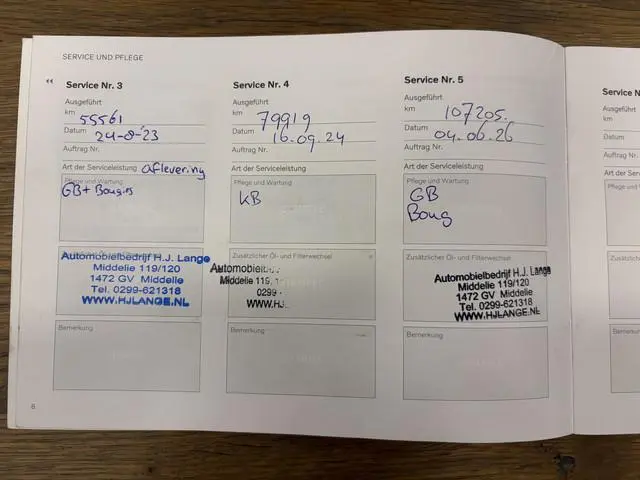 SERVICE UND PFLEGE
Service Nr. 3
Ausgeführt
km 55561
Datum 24-8-23
Auftrag Nr.
Art der Serviceleistung aflevering
Pflege und Wartung
GB + Bougies
Automobielbedrijf H.J. Lange
Middelie 119/120
1472 GV Middelie
Tel. 0299-621318
WWW.HJLANGE.NL
Bemerkung
6
Service Nr. 4
Ausgeführt
km 79919
Datum 16.09.24
Auftrag Nr.
Art der Serviceleistung
Pflege und Wartung
KB
Zusätzlicher Öl- und Filterwechsel
Automobielbe
Middelie 119,
0299-
WWW.HJ
Bemerkung
Service Nr. 5
Ausgeführt
km 107205.
Datum 04.06.26
Auftrag Nr.
Art der Serviceleistung
Pflege und Wartung
GB
Boug
Zusätzlicher Öl- und Filterwechsel
Automobielbedrijf H.J. Lange
Middelie 119/120
1472 GV Middelie
Tel. 0299-621318
WWW.HJLANGE.NL
Bemerkung
Service N
Ausgeführt
km
Datum
Auftrag Nr.
Art der Serv
Pflege und
Zusätzl
Bemerk